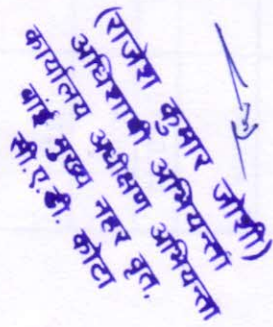 (राजेश कुमार जोशी)
अधिशाषी अभियन्ता
कार्यालय अधीक्षण अभियन्ता
बांई मुख्य नहर वृत.
सी.ए.डी. कोटा